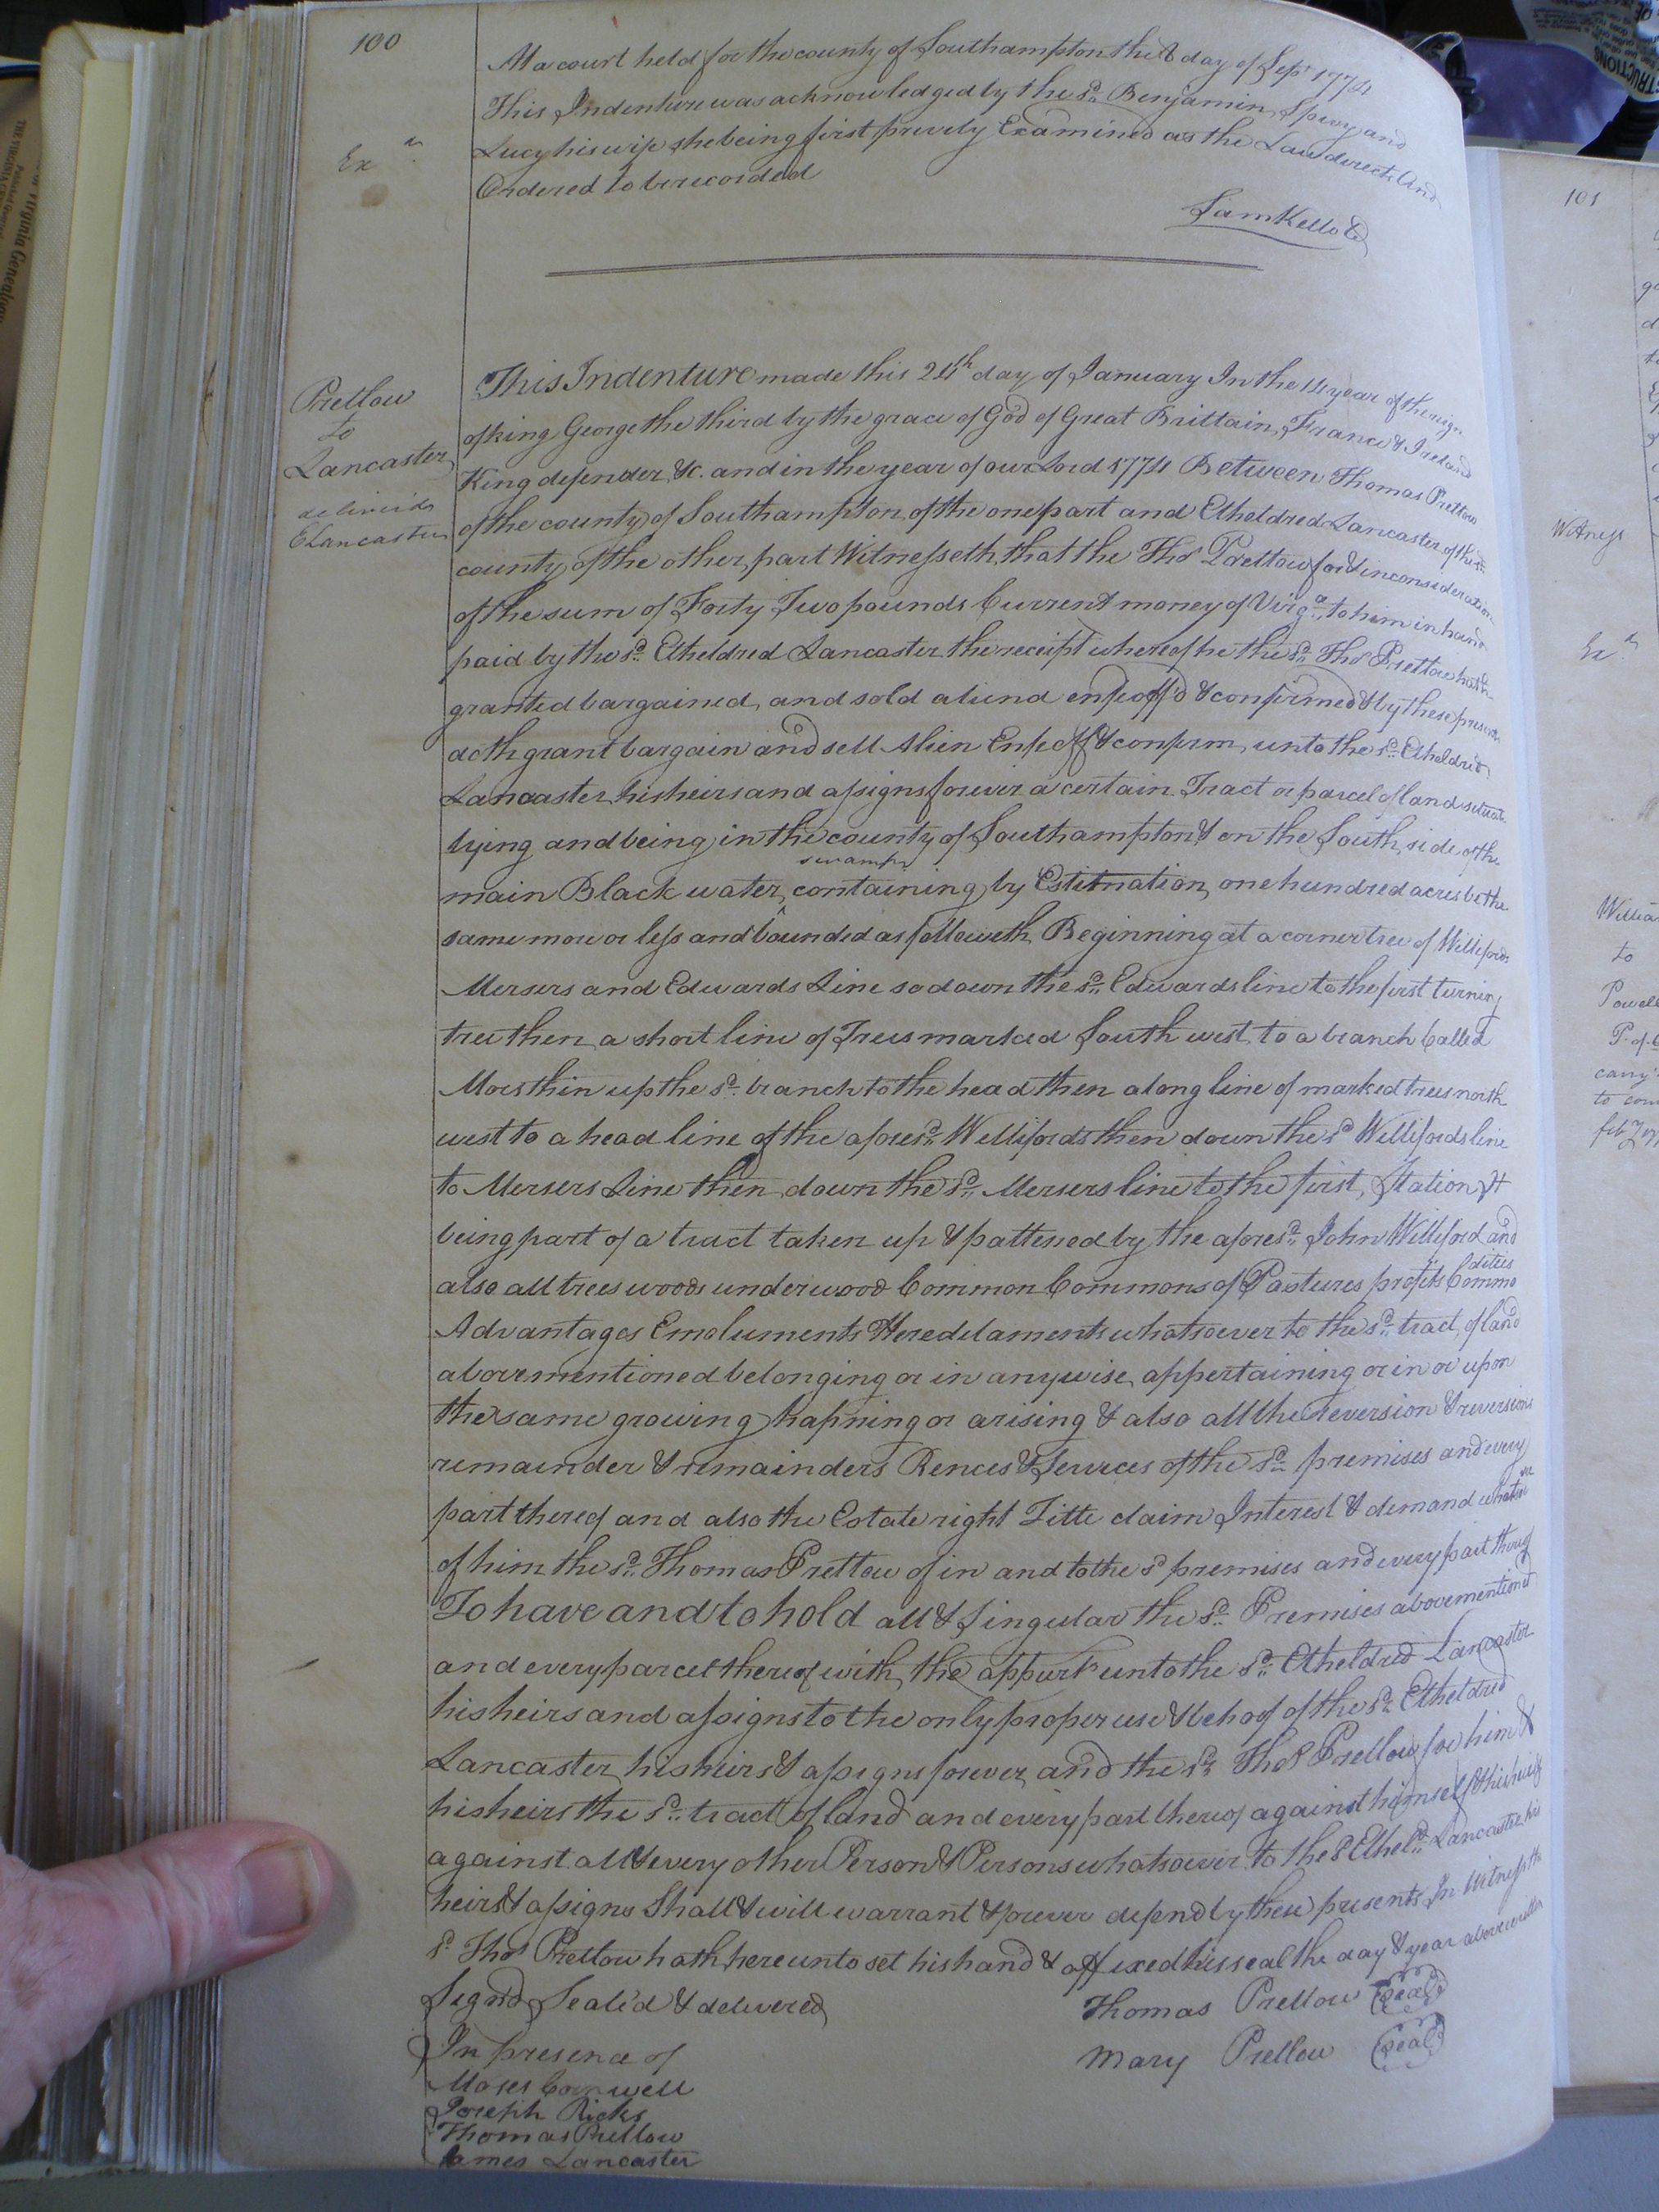 100
At a court held for the county of Southampton the 8 day of Sept 1774
This Indenture was acknowledged by the sd. Benjamin Spivy and
Lucy his wife she being first prively Examined as the Law directs And
Ordered to be recorded
Exd.
Sam Kello C
Pretlow
to
Lancaster
delivered
E Lancaster
This Indenture made this 24th day of January In the 14 year of the reign
of king George the third by the grace of God of Great Brittain, France & Ireland
King defender &c. and in the year of our Lord 1774 Between Thomas Pretlow
of the county of Southampton of the one part and Etheldred Lancaster of the sd.
county of the other part Witnesseth, that the Thos Pretlow for & in consideration
of the sum of Forty Two pounds Current money of Virga. to him in hand
paid by the sd. Etheldred Lancaster the receipt whereof he the sd. Thos Pretlow hath
granted bargained, and sold aliend enfeoff'd & confirmed & by these presents
doth grant bargain and sell Alien Enfeoff & confirm, unto the sd. Etheldred
Lancaster, his heirs and assigns forever a certain Tract or parcel of land situate
lying and being in the county of Southampton & on the South side of the
main Black water swamp containing by Estimation one hundred acres be the
same more or less and bounded as followeth, Beginning at a corner tree of Willifords
Mersers and Edwards Line so down the sd. Edwards line to the first turning
tree then a short line of Trees marked South west to a branch Called
then up the sd. branch to the head then along line of marked trees north
west to a head line of the aforesd. Willifords then down the sd Willifords line
to Mersers Line then down the sd. Mersers line to the first, Station It
being part of a tract taken up & pattened by the aforesd. John Williford and
also all trees woods underwood Common Commons of Pastures profits Commodities
Advantages Emoluments Hereditaments whatsoever to the sd. tract, of land
abovementioned belonging or in anywise, appertaining or in or upon
the same growing hapning or arising & also all the reversion & reversions
remainder & remainders Rences & Services of the sd. premises and every
part thereof and also the Estate right Title claim Interest & demand whatsoever
of him the sd. Thomas Pretlow of in and to the sd premises and every part thereof
To have and to hold all & Singular the sd. Premises abovementioned
and every parcel thereof with, the appurts unto the sd. Etheldred Lancaster
his heirs and assigns to the only proper use & behoof of the sd. Etheldred
Lancaster, his heirs & assigns forever, and the sd. Thos Pretlow for him &
his heirs the sd. tract of land and every part thereof against himself & his heirs
against all & every other Person & Persons whatsoever to the sd Etheld. Lancaster, his
heirs & assigns Shall & will warrant & forever defend by these presents In Witness the
sd. Thos Pretlow hath hereunto set his hand & affixed his seal the day & year above written
Sign'd Seal'd & delivered
In presence of
Thomas Pretlow Seal
Mary Pretlow Seal
Moses Cornwell
Joseph Ricks
Thomas Pretlow
James Lancaster
101
Witness
Exd.
Willia
to
Powell